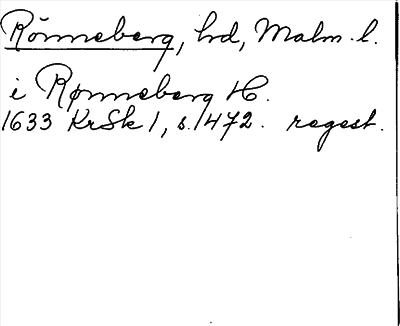 Rönneberg, hd, Malm. l.
i Rønneberg H.
1633 KrSk 1, s. 472. regest.